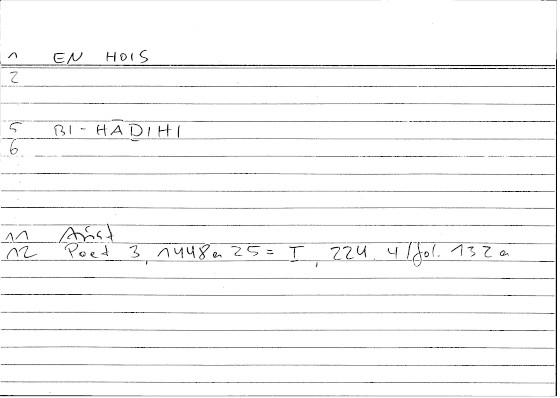 1 EN HOIS
2
5 BI-HĀḎIHI
6
11 Arist
12 Poet 3, 1448a25 = I, 224.4/fol. 132a